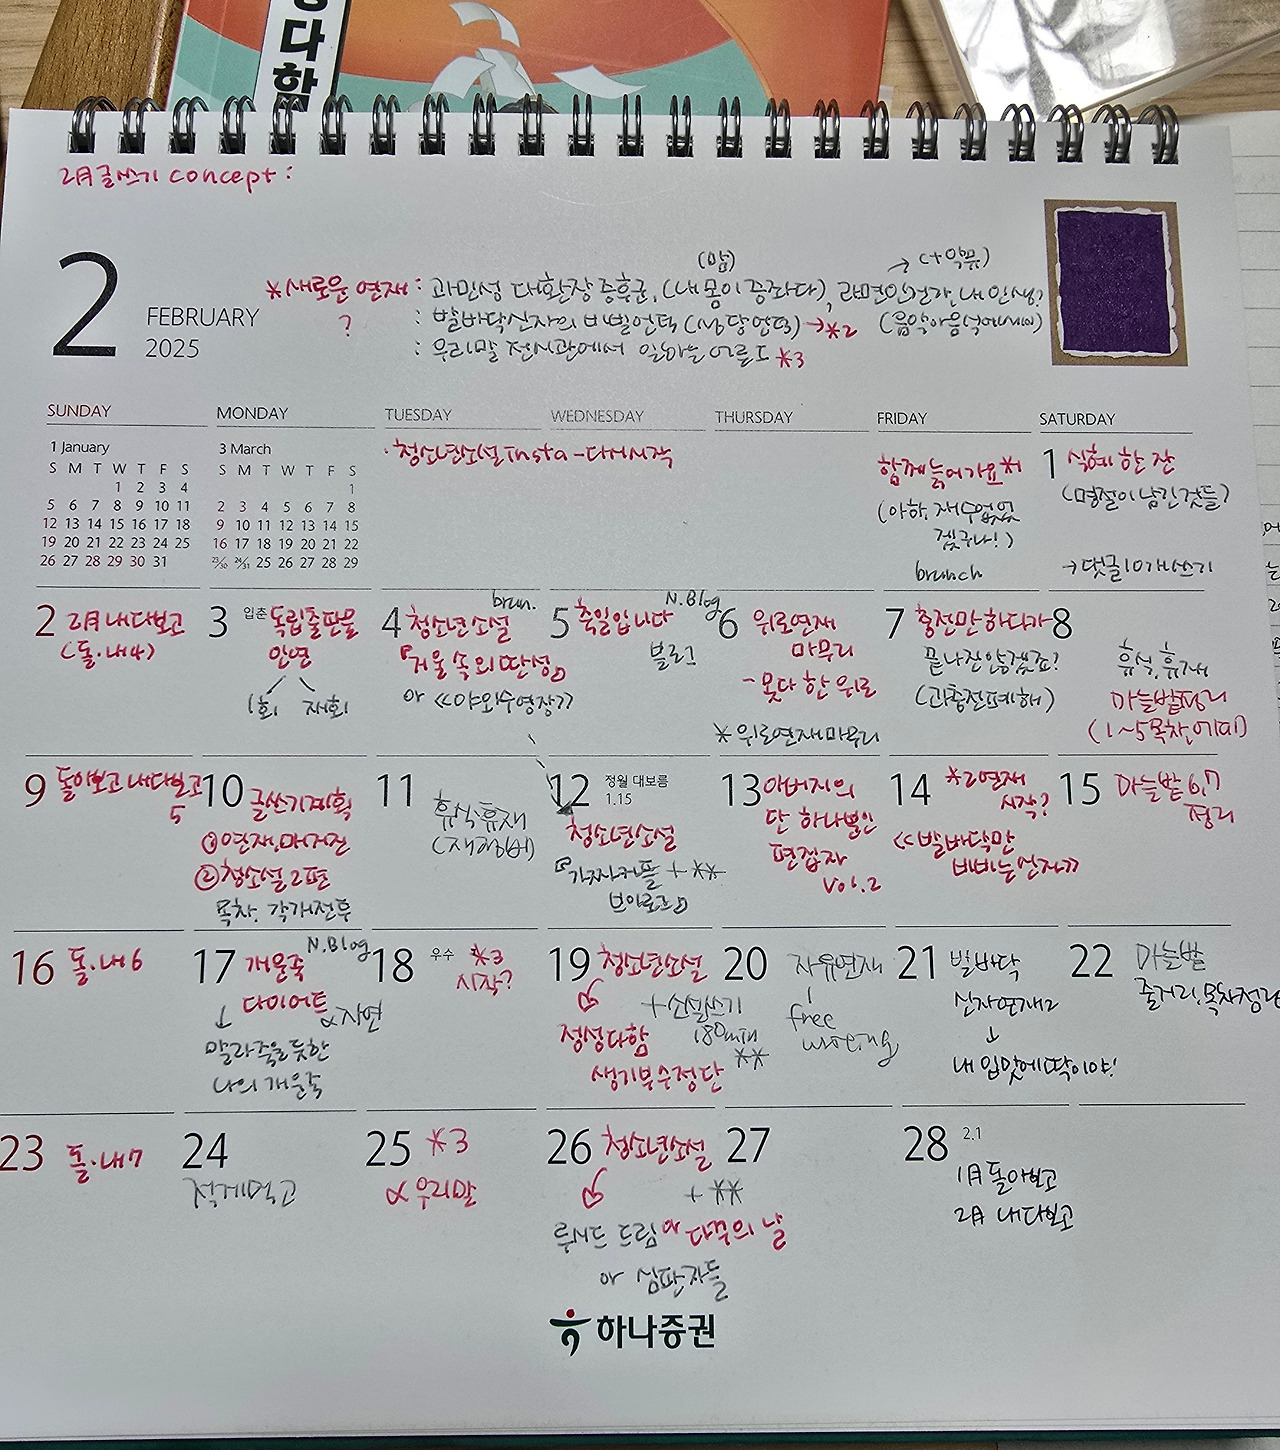 다함
2月 글쓰기 concept :
2
FEBRUARY
2025
(맘) → (+악뮤)
*새로운 연재 : 과민성 대환장 증후군, (내 몸이 증좌다), 라면인건가, 내 인생?
? : 발바닥신자의 비빌언덕 (상당연덕) →*2 (음악아음식에세이)
: 우리말 전시관에서 일하는 어른도 *3
SUNDAY MONDAY TUESDAY WEDNESDAY THURSDAY FRIDAY SATURDAY
1 January
S M T W T F S
1 2 3 4
5 6 7 8 9 10 11
12 13 14 15 16 17 18
19 20 21 22 23 24 25
26 27 28 29 30 31
3 March
S M T W T F S
1
2 3 4 5 6 7 8
9 10 11 12 13 14 15
16 17 18 19 20 21 22
23/30 24/31 25 26 27 28 29
· 청소년소설 Insta - 다시시작
함께늙어가요*1
(아하, 재수없었
겠구나!)
brunch
1 식혜 한 잔
(명절이 남긴것들)
→댓글 10개쓰기
2 2月 내다보고
(돌·내4)
3 입춘 독립출판물
인연
1회 재회
4 brun.
청소년소설
『거울 속 외딴 성』
or 《야외수영장》
5 N.Blog
죽일입니다
블런
6 위로연재
마무리
- 못다 한 위로
* 위로연재마무리
7 충전만 하다가
끝나진 않겠죠?
(과충전폐해)
8
휴식, 휴재
마늘밭정리
(1~5목차,에피)
9 돌아보고 내다보고
5
10 글쓰기계획
①연재,매거진
②청소설 2편
목차, 각개전투
11
휴식휴재
(재정비)
12 정월 대보름
1.15
청소년소설
『가짜커플 + **
브이로그』
13 아버지의
단 하나뿐인
편집자
Vol.2
14 *2연재
시작?
《발바닥만
비비는신자》
15 마늘밭 6,7
정리
16 돌·내6
17 N.Blog
개운죽
↓ 다이어트
α자연
말라죽을듯한
나의 개운죽
18 우수 *3
시작?
19 청소년소설
+소설쓰기
180min
**
정성다함
생기부수정단
20 자유연재
free
writing
21 발바닥
신자연재2
↓
내 입맛에딱이야!
22 마늘밭
줄거리,목차정리
23 돌·내7
24
적게먹고
25 *3
α 우리말
26 청소년소설
+ **
루시드 드림 or 다꾸의 날
or 심판자들
27
28 2.1
1月 돌아보고
2月 내다보고
하나증권